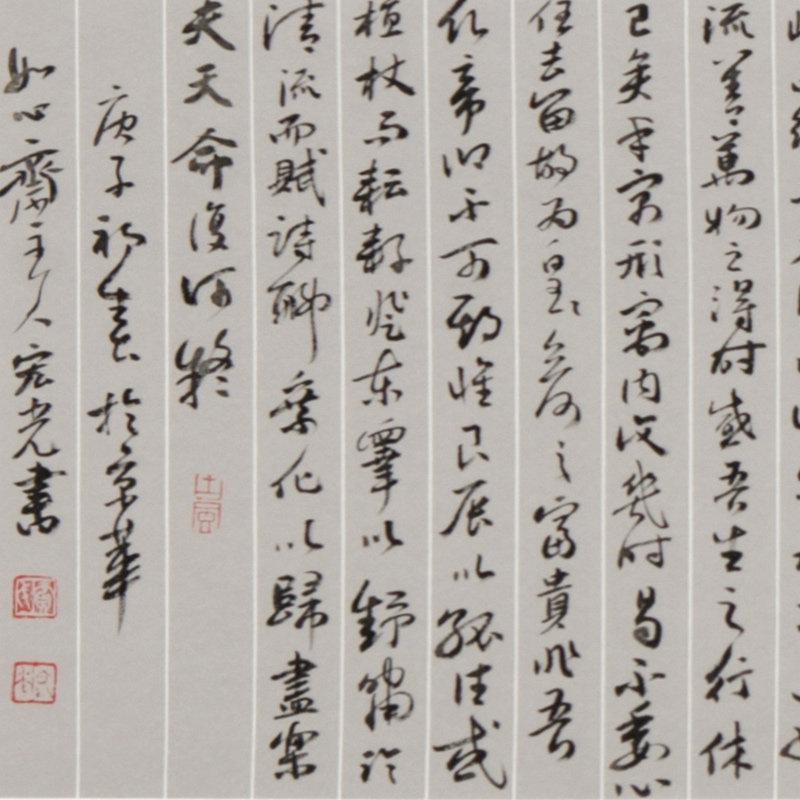 流善萬物之得时感吾生之行休
已矣乎寓形寓内復幾时曷不委心
任去留胡为皇皇欲何之富貴非吾
願帝鄉不可期懷良辰以孤往或
植杖而耘耔登東皋以舒嘯臨
清流而賦詩聊乘化以歸盡樂
夫天命復何疑
庚子初春於京華
如心齋主人宏光書